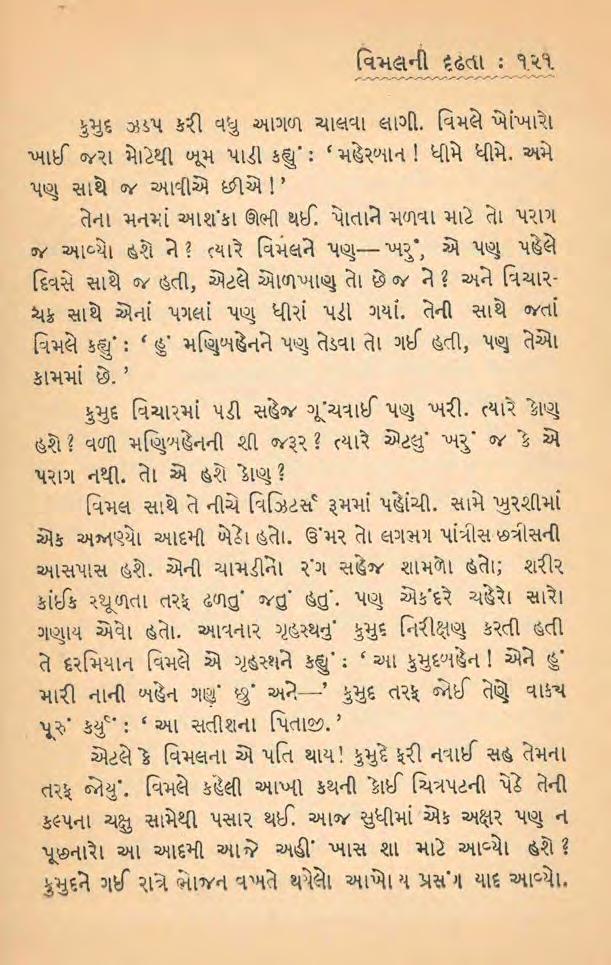 વિમલની દૃઢતા : ૧૨૧
કુમુદ ઝડપ કરી વધુ આગળ ચાલવા લાગી. વિમલે ખોંખારો
ખાઈ જરા મોટેથી બૂમ પાડી કહ્યું : ‘મહેરબાન ! ધીમે ધીમે. અમે
પણ સાથે જ આવીએ છીએ !’
તેના મનમાં આશંકા ઊભી થઈ. પોતાને મળવા માટે તો પરાગ
જ આવ્યો હશે ને ? ત્યારે વિમલને પણ— ખરું, એ પણ પહેલે
દિવસે સાથે જ હતી, એટલે ઓળખાણ તો છે જ ને ? અને વિચાર-
ચક્ર સાથે એનાં પગલાં પણ ધીરાં પડી ગયાં. તેની સાથે જતાં
વિમલે કહ્યું : ‘હું મણિબહેનને પણ તેડવા તો ગઈ હતી, પણ તેઓ
કામમાં છે.’
કુમુદ વિચારમાં પડી સહેજ ગૂંચવાઈ પણ ખરી. ત્યારે કોણ
હશે ? વળી મણિબહેનની શી જરૂર ? ત્યારે એટલું ખરું જ કે એ
પરાગ નથી. તો એ હશે કોણ ?
વિમલ સાથે તે નીચે વિઝિટર્સ રૂમમાં પહોંચી. સામે ખુરશીમાં
એક અજાણ્યો આદમી બેઠો હતો. ઉંમર તો લગભગ પાંત્રીસ છત્રીસની
આસપાસ હશે. એની ચામડીનો રંગ સહેજ શામળો હતો; શરીર
કાંઈક સ્થૂળતા તરફ ઢળતું જતું હતું. પણ એકંદરે ચહેરો સારો
ગણાય એવો હતો. આવનાર ગૃહસ્થનું કુમુદ નિરીક્ષણ કરતી હતી
તે દરમિયાન વિમલે એ ગૃહસ્થને કહ્યું : ‘આ કુમુદબહેન ! એને હું
મારી નાની બહેન ગણું છું અને—’ કુમુદ તરફ જોઈ તેણે વાક્ય
પૂરું કર્યું : ‘આ સતીશના પિતાજી.’
એટલે કે વિમલના એ પતિ થાય ! કુમુદે ફરી નવાઈ સહ તેમના
તરફ જોયું. વિમલે કહેલી આખી કથની કોઈ ચિત્રપટની પેઠે તેની
કલ્પના ચક્ષુ સામેથી પસાર થઈ. આજ સુધીમાં એક અક્ષર પણ ન
પૂછનારો આ આદમી આજે અહીં ખાસ શા માટે આવ્યો હશે ?
કુમુદને ગઈ રાત્રે ભોજન વખતે થયેલો આખો ય પ્રસંગ યાદ આવ્યો.